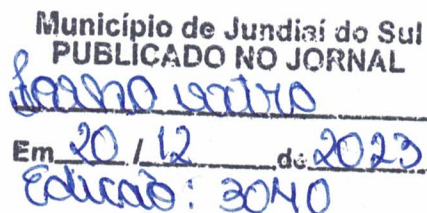 Município de Jundiaí do Sul
PUBLICADO NO JORNAL
Em 20 / 12 de 2023
Edição: 3040